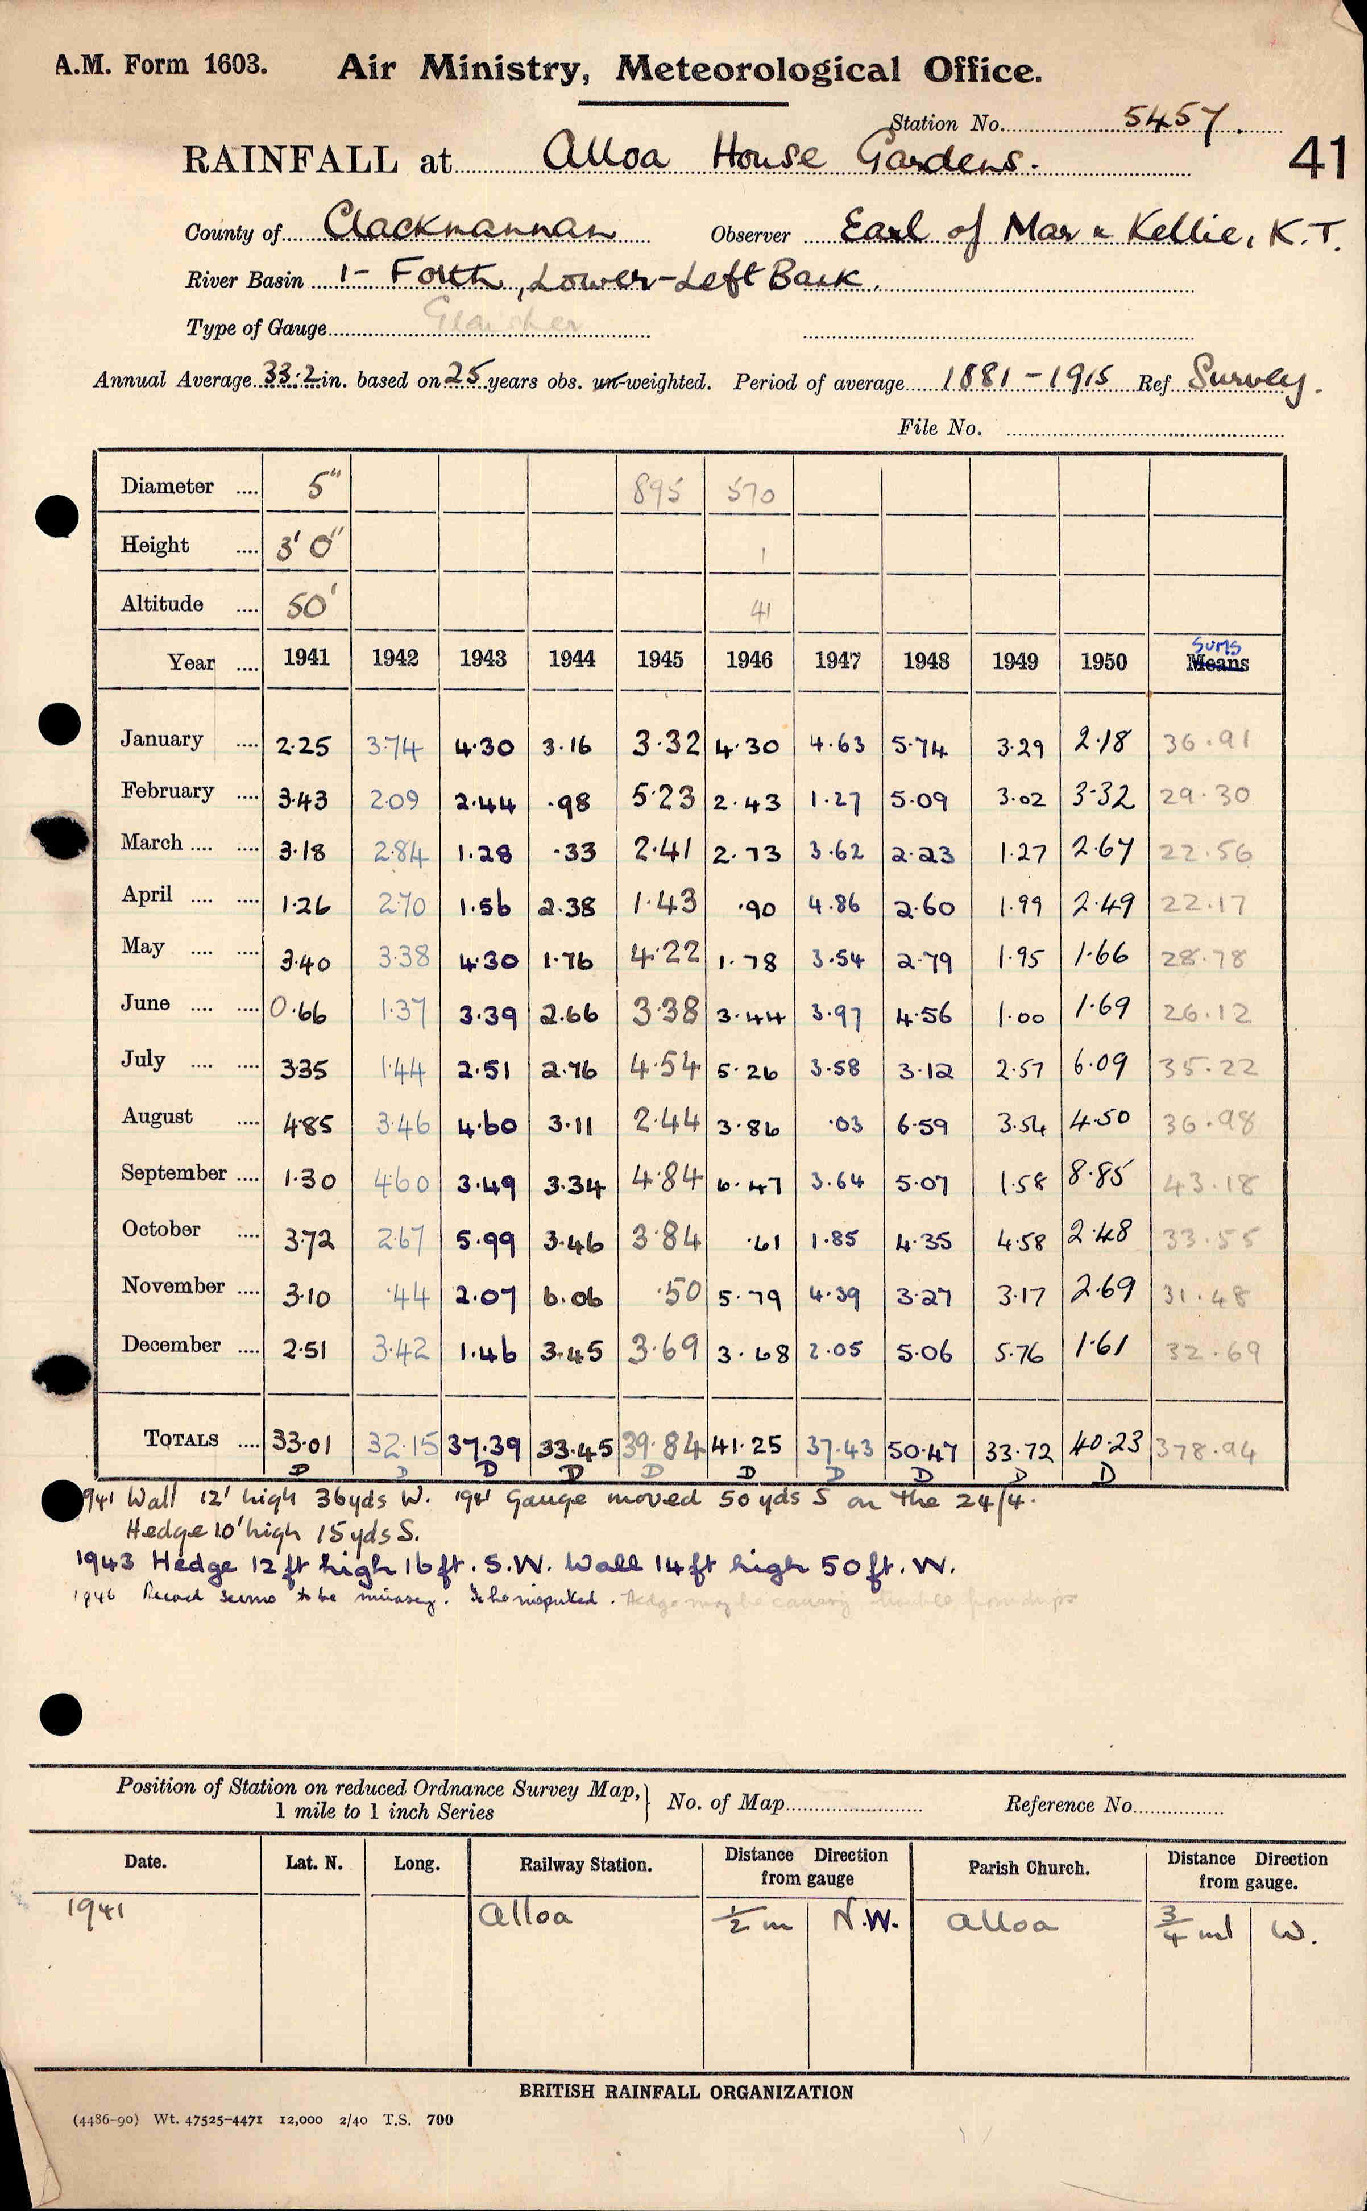 A.M. Form 1603. Air Ministry, Meteorological Office.
Station No. 5457.
RAINFALL at Alloa House Gardens. 41
County of Clackmannan Observer Earl of Mar & Kellie, K.T.
River Basin 1- Forth, Lower-Left Bank.
Type of Gauge Glaisher
Annual Average 33.2 in. based on 25 years obs. un-weighted. Period of average 1881-1915 Ref. Survey.
File No.
Diameter .... 5" 895 570
Height .... 3' 0" 1
Altitude .... 50' 41
Sums
Year .... 1941 1942 1943 1944 1945 1946 1947 1948 1949 1950 Means
January .... 2.25 3.74 4.30 3.16 3.32 4.30 4.63 5.74 3.29 2.18 36.91
February .... 3.43 2.09 2.44 .98 5.23 2.43 1.27 5.09 3.02 3.32 29.30
March .... .... 3.18 2.84 1.28 .33 2.41 2.73 3.62 2.23 1.27 2.67 22.56
April .... .... 1.26 2.70 1.56 2.38 1.43 .90 4.86 2.60 1.99 2.49 22.17
May .... .... 3.40 3.38 4.30 1.76 4.22 1.78 3.54 2.79 1.95 1.66 28.78
June .... .... 0.66 1.37 3.39 2.66 3.38 3.44 3.97 4.56 1.00 1.69 26.12
July .... .... 3.35 1.44 2.51 2.76 4.54 5.26 3.58 3.12 2.57 6.09 35.22
August .... 4.85 3.46 4.60 3.11 2.44 3.86 .03 6.59 3.54 4.50 36.98
September .... 1.30 4.60 3.49 3.34 4.84 6.47 3.64 5.07 1.58 8.85 43.18
October .... 3.72 2.67 5.99 3.46 3.84 .61 1.85 4.35 4.58 2.48 33.55
November .... 3.10 .44 2.07 6.06 .50 5.79 4.39 3.27 3.17 2.69 31.48
December .... 2.51 3.42 1.46 3.45 3.69 3.68 2.05 5.06 5.76 1.61 32.69
TOTALS .... 33.01 32.15 37.39 33.45 39.84 41.25 37.43 50.47 33.72 40.23 378.94
D D D D D D D D D D
1941 Wall 12' high 36yds W. 1941 Gauge moved 50 yds S on the 24/4.
Hedge 10' high 15 yds S.
1943 Hedge 12 ft high 16 ft. S.W. Wall 14 ft high 50 ft. W.
1946 Record seems to be. To be inspected. Hedge may be causing trouble from drips
Position of Station on reduced Ordnance Survey Map, 1 mile to 1 inch Series } No. of Map Reference No.
Date. Lat. N. Long. Railway Station. Distance Direction from gauge Parish Church. Distance Direction from gauge.
1941 Alloa 1/2 m N.W. Alloa 3/4 ml W.
BRITISH RAINFALL ORGANIZATION
(4486-90) Wt. 47525-4471 12,000 2/40 T.S. 700